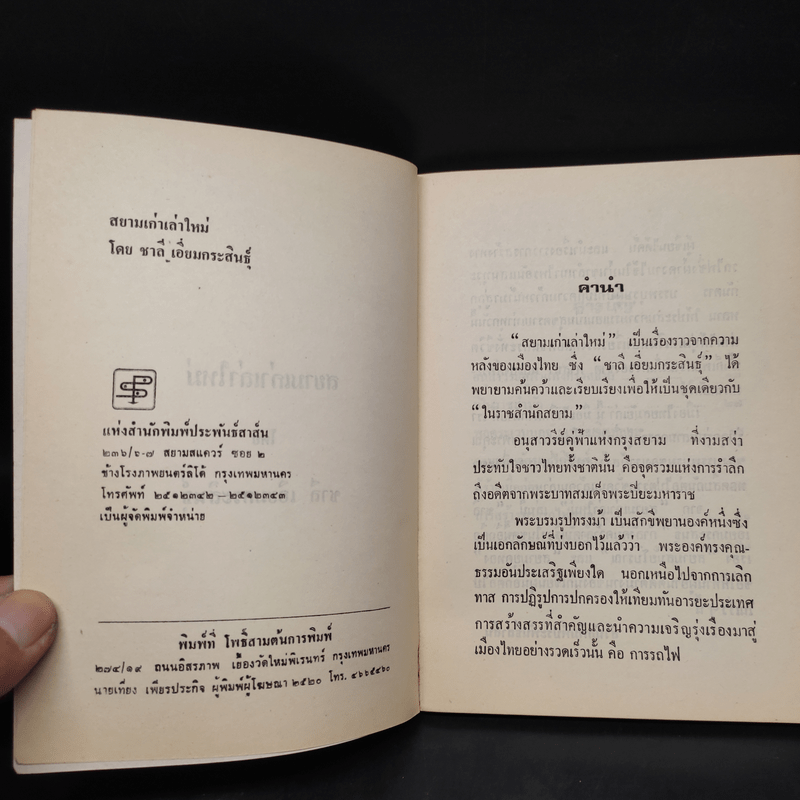 สยามเก่าเล่าใหม่
โดย ชาลี เอี่ยมกระสินธุ์
แห่งสำนักพิมพ์ประพันธ์สาส์น
๒๓๖/๖-๗ สยามสแควร์ ซอย ๒
ข้างโรงภาพยนตร์ลิโด้ กรุงเทพมหานคร
โทรศัพท์ ๒๕๑๒๓๔๒ – ๒๕๑๒๓๔๓
เป็นผู้จัดพิมพ์จำหน่าย
พิมพ์ที่ โพธิ์สามต้นการพิมพ์
๒๗๔/๑๙ ถนนอิสรภาพ เยื้องวัดใหม่พิเรนทร์ กรุงเทพมหานคร
นายเที่ยง เพียรประกิจ ผู้พิมพ์ผู้โฆษณา ๒๕๒๐ โทร. ๔๖๖๕๔๖๐
คำนำ
“สยามเก่าเล่าใหม่” เป็นเรื่องราวจากความ
หลังของเมืองไทย ซึ่ง “ชาลี เอี่ยมกระสินธุ์” ได้
พยายามค้นคว้าและเรียบเรียงเพื่อให้เป็นชุดเดียวกับ
“ในราชสำนักสยาม”
อนุสาวรีย์คู่ฟ้าแห่งกรุงสยาม ที่งามสง่า
ประทับใจชาวไทยทั้งชาตินั้น คือจุดรวมแห่งการรำลึก
ถึงอดีตจากพระบาทสมเด็จพระปิยะมหาราช
พระบรมรูปทรงม้า เป็นสักขีพยานองค์หนึ่งซึ่ง
เป็นเอกลักษณ์ที่บ่งบอกไว้แล้วว่า พระองค์ทรงคุณ-
ธรรมอันประเสริฐเพียงใด นอกเหนือไปจากการเลิก
ทาส การปฏิรูปการปกครองให้เทียมทันอารยะประเทศ
การสร้างสรรที่สำคัญและนำความเจริญรุ่งเรืองมาสู่
เมืองไทยอย่างรวดเร็วนั้น คือ การรถไฟ